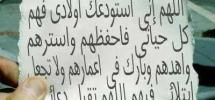 اللهم إني استودعك أولادي فهم
كل حياتي فاحفظهم واسترهم
واهدهم وبارك في أعمارهم ولا تجعل
فيهم اللهم تقبل